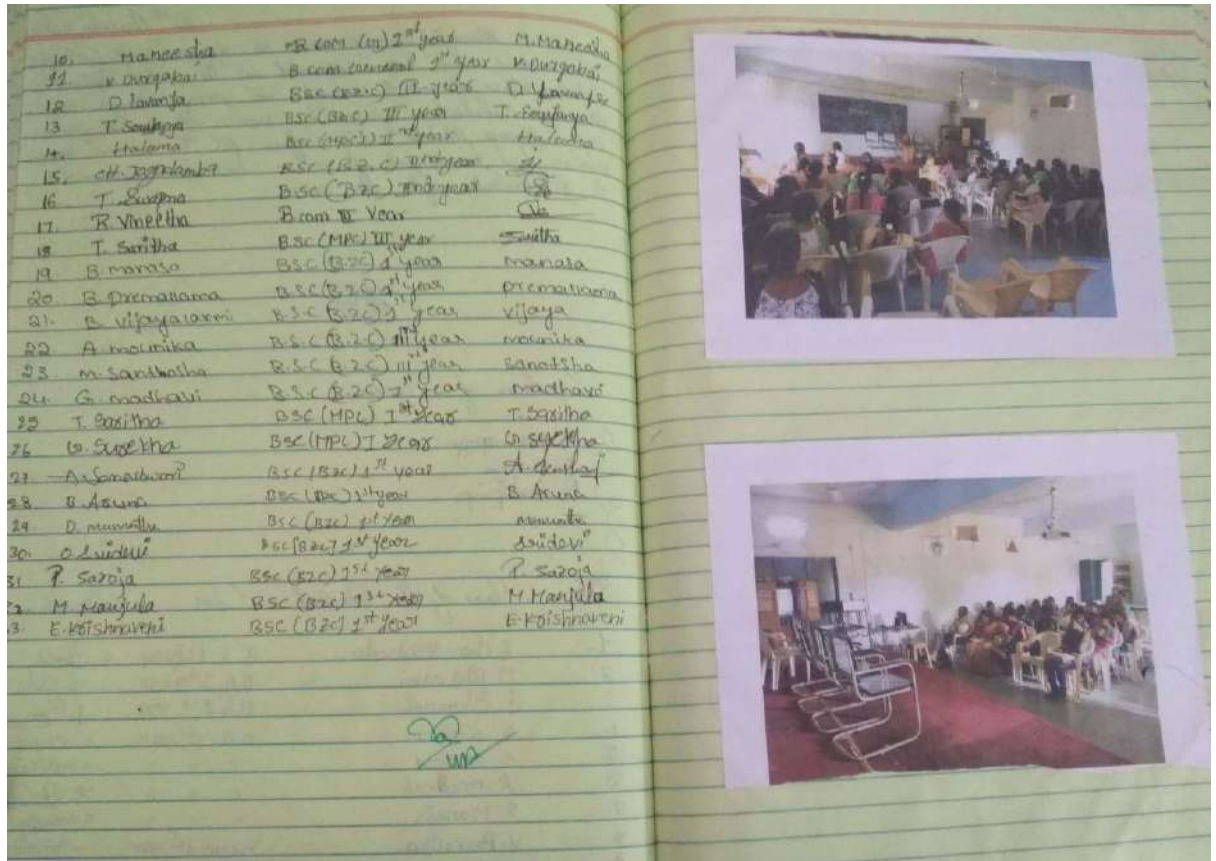 10. Maneesha B COM (CA) 1st year M. Maneesha
11 V. Durgabai B. com General 1st year V. Durgabai
12 D. lavanya BSC (BZC) III year D. Lavanya
13 T. Soujanya BSC (BZC) III year T. Soujanya
14. Haleema
15. CH. Jagadamba BSC (BZ.C) IInd year
16 T. B.SC (BZC) IInd year
17. R. Vineetha B.com III Year
18 T. Saritha B.SC (MPC) III year Saritha
19 B. manasa B.S.C (B.ZC) 1st year manasa
20 B. premallama B.S.C (B.ZC) 1st year premallama
21. B. vijayalaxmi B.S.C (B.ZC) 1st year vijaya
22 A mounika B.S.C (B.Z.C) III year mounika
23 m. Santhosha B.S.C (B.ZC) III year
24. G. madhavi B.S.C (B.ZC) 1st year madhavi
25 T. Saritha BSC (MPC) 1st year T. Saritha
26 G. Surekha BSC (MPC) I year G. Surekha
27. A. Someshwari BSC (BZC) 1st year A.
28 B. Aruna BSC (BZC) 1st year B. Aruna
29 D. mamatha BSC (BZC) 1st year mamatha
30. O. Sridevi BSC (BZC) 1st year Sridevi
31 P. Saroja BSC (BZC) 1st year P. Saroja
M. Manjula BSC (BZC) 1st year M Manjula
3. E. Krishnaveni BSC (BZC) 1st year E. Krishnaveni